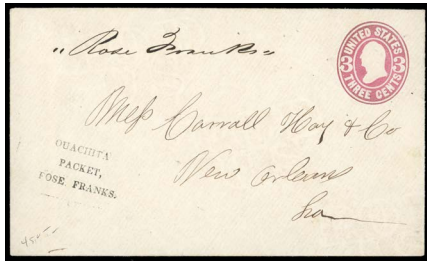 "Rose Franks"
UNITED STATES
3 3
THREE CENTS
Mess Carroll Hoy & Co
New Orleans
La
OUACHITA
PACKET,
ROSE FRANKS.